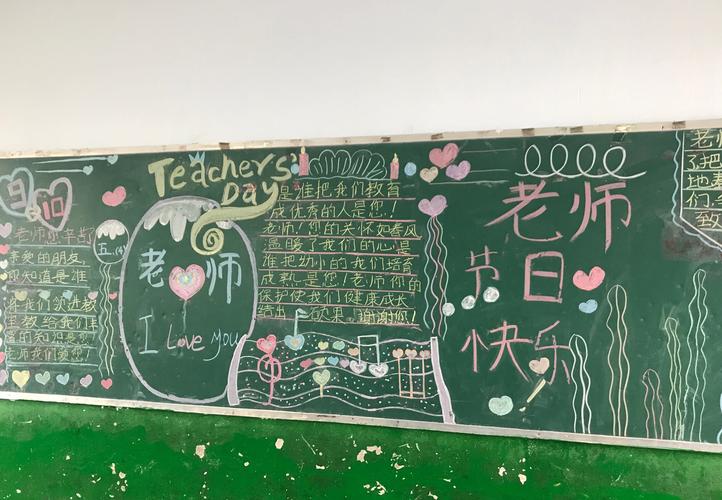 10
老师您辛苦
亲爱的朋友
知道是谁
我们
教给我们
的知识是您
师我们爱您!
五.(4)
Teachers'
Day
老师
I Love you
是谁把我们教育
成优秀的人是您!
老师!您的关怀如春风
温暖了我们的心是
谁把幼小的我们培育
成熟是您!老师你的
保护使我们健康成长
结出 硕果。谢谢您!
老师
节日
快乐
老
了把
地
们
致